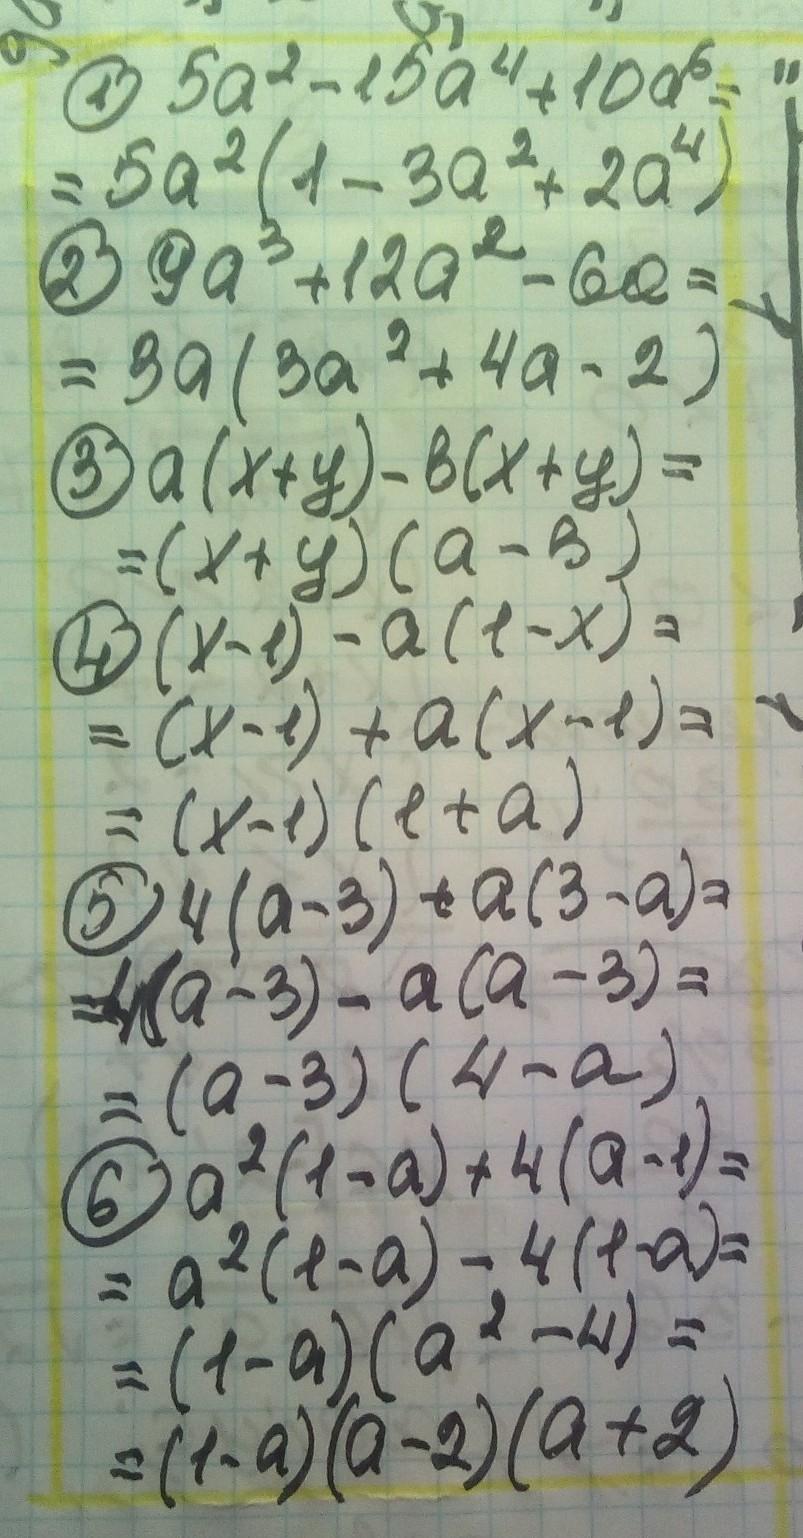 ① 5a² - 15a⁴ + 10a⁶ =
= 5a² (1 - 3a² + 2a⁴)
② 9a³ + 12a² - 6a =
= 3a (3a² + 4a - 2)
③ a(x+y) - в(x+y) =
= (x+y) (a - в)
④ (x-1) - a(1-x) =
= (x-1) + a(x-1) =
= (x-1) (1+a)
⑤ 4(a-3) + a(3-a) =
= 4(a-3) - a(a-3) =
= (a-3) (4-a)
⑥ a²(1-a) + 4(a-1) =
= a²(1-a) - 4(1-a) =
= (1-a) (a²-4) =
= (1-a) (a-2) (a+2)